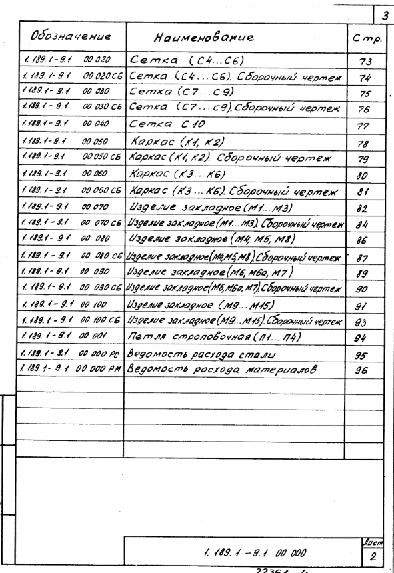 3
Обозначение Наименование Стр.
1.189.1-9.1 00 020 Сетка (С4...С6) 73
1.189.1-9.1 00 020 СБ Сетка (С4...С6). Сборочный чертеж 74
1.189.1-9.1 00 030 Сетка (С7...С9) 75
1.189.1-9.1 00 030 СБ Сетка (С7...С9). Сборочный чертеж 76
1.189.1-9.1 00 040 Сетка С10 77
1.189.1-9.1 00 050 Каркас (К1, К2) 78
1.189.1-9.1 00 050 СБ Каркас (К1, К2) Сборочный чертеж 79
1.189.1-9.1 00 060 Каркас (К3...К6) 80
1.189.1-9.1 00 060 СБ Каркас (К3...К6). Сборочный чертеж 81
1.189.1-9.1 00 070 Изделие закладное (М1...М3) 82
1.189.1-9.1 00 070 СБ Изделие закладное (М1...М3). Сборочный чертеж 84
1.189.1-9.1 00 080 Изделие закладное (М4, М5, М8) 86
1.189.1-9.1 00 080 СБ Изделие закладное (М4, М5, М8). Сборочный чертеж 87
1.189.1-9.1 00 090 Изделие закладное (М6, М6а, М7) 89
1.189.1-9.1 00 090 СБ Изделие закладное (М6, М6а, М7). Сборочный чертеж 90
1.189.1-9.1 00 100 Изделие закладное (М9...М15) 91
1.189.1-9.1 00 100 СБ Изделие закладное (М9...М15). Сборочный чертеж 93
1.189.1-9.1 00 001 Петля строповочная (П1...П4) 94
1.189.1-9.1 00 000 РС Ведомость расхода стали 95
1.189.1-9.1 00 000 РМ Ведомость расхода материалов 96
1.189.1-9.1 00 000
Лист
2